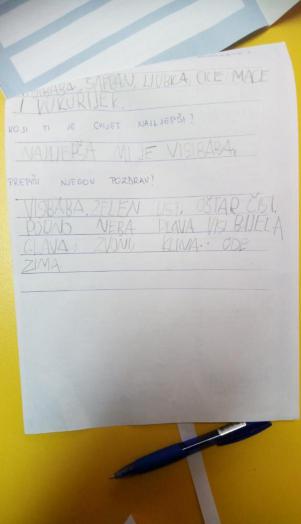 VISIBABA, ŠAFRAN, LJUBICA, CICE MACE
I KUKURIJEK.
KOJI TI JE CVIJET NAJLJEPŠI?
NAJLJEPŠA MI JE VISIBABA.
PREPIŠI NJEGOV POZDRAV!
VISIBABA, ZELEN LIST, OŠTAR
NEBA PLAVA VISI BIJELA
GLAVA: ZVONI, KLIVA.: ODE
ZIMA